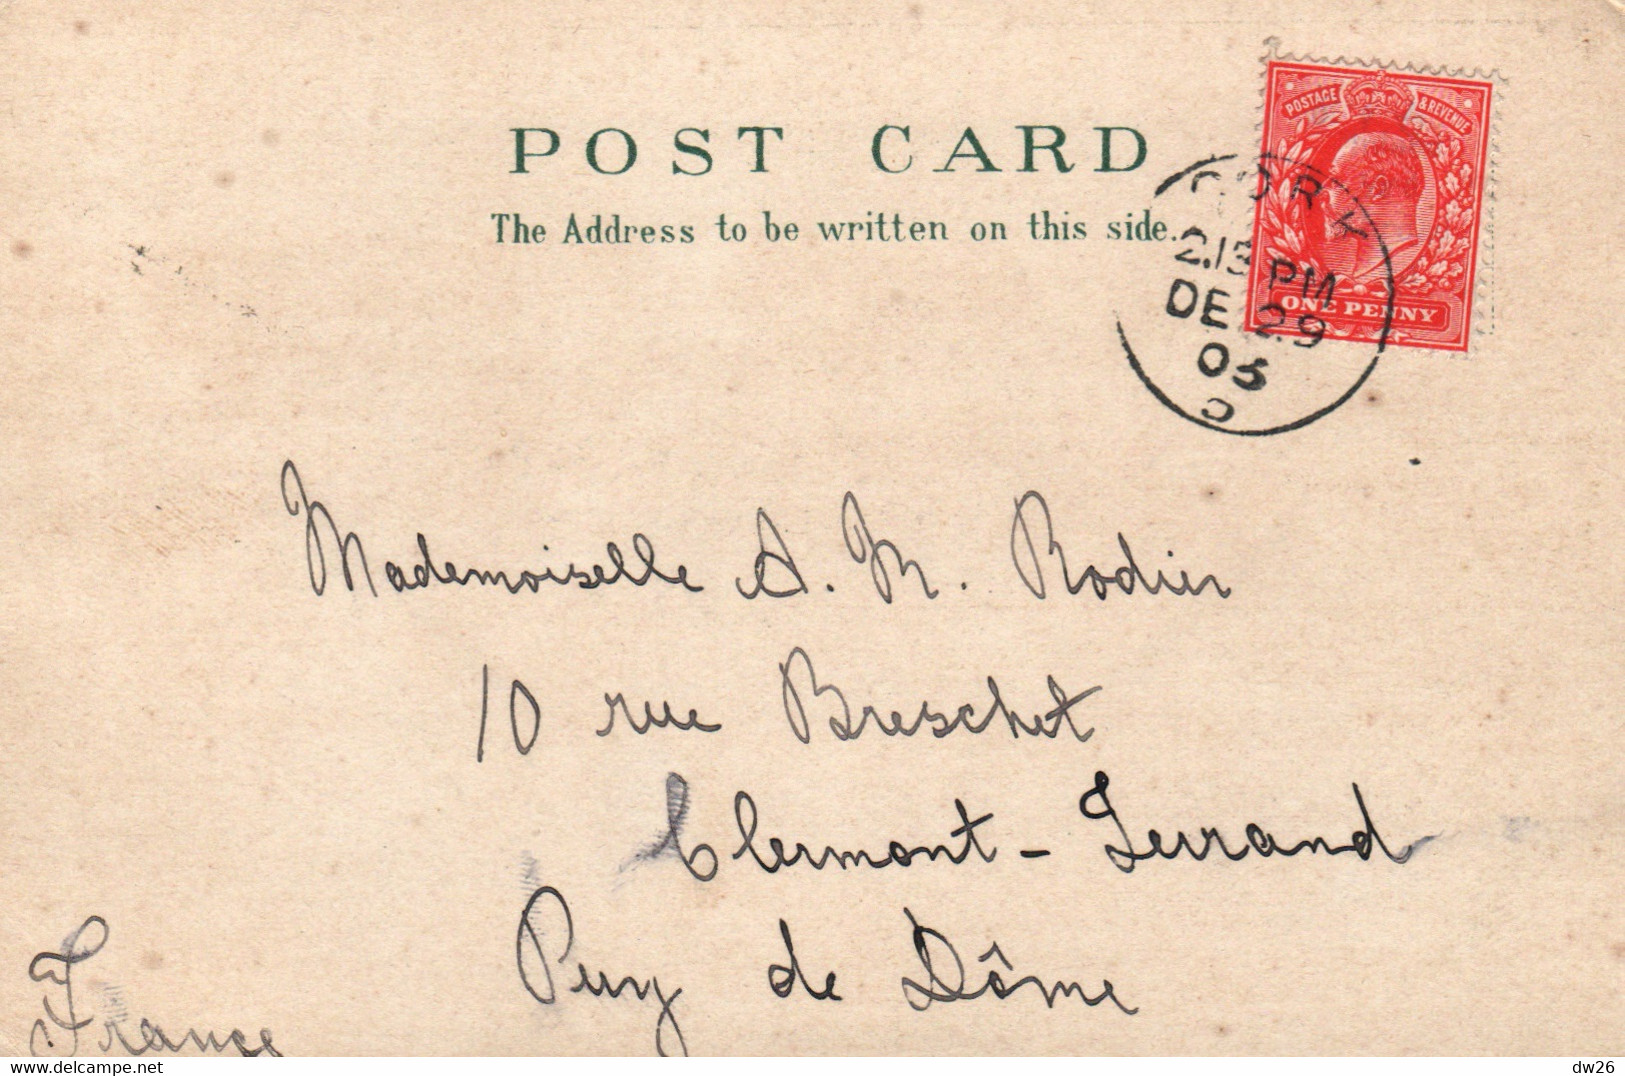 POST CARD
The Address to be written on this side.
POSTAGE & REVENUE
ONE PENNY
CORK
2.15 PM
DE 29
03
Mademoiselle A. M. Rodier
10 rue Breschet
Clermont-Ferrand
Puy de Dôme
France
delcampe.net
dw26